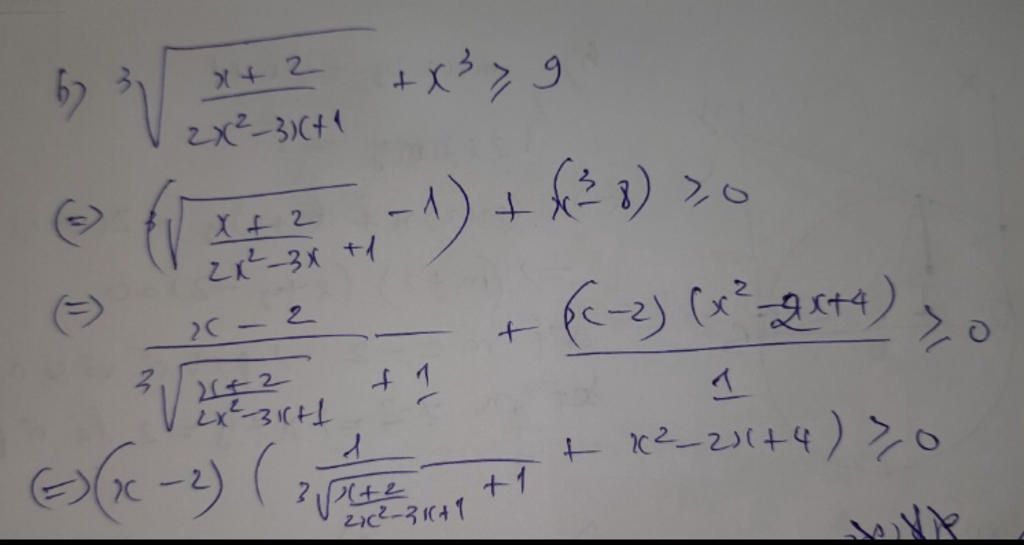 b) ∛((x+2)/(2x²-3x+1)) + x³ ≥ 9
(=) (∛((x+2)/(2x²-3x+1)) - 1) + (x³-8) ≥ 0
(=) (x-2)/(∛((x+2)/(2x²-3x+1)) + 1) + ((x-2)(x²-2x+4))/1 ≥ 0
(=) (x-2)(1/(∛((x+2)/(2x²-3x+1)) + 1) + x²-2x+4) ≥ 0